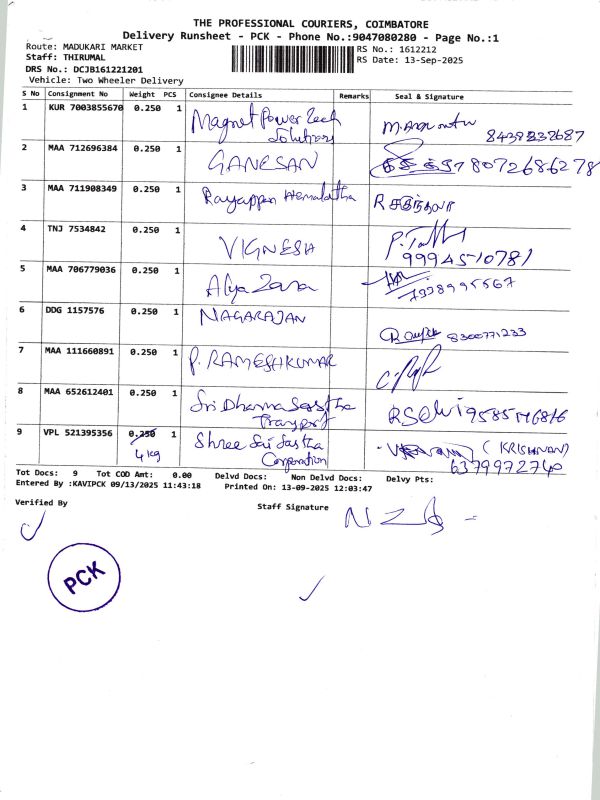 THE PROFESSIONAL COURIERS, COIMBATORE
Delivery Runsheet - PCK - Phone No.:9047080280 - Page No.:1
Route: MADUKARI MARKET
RS No.: 1612212
Staff: THIRUMAL
RS Date: 13-Sep-2025
DRS No.: DCJB161221201
Vehicle: Two Wheeler Delivery
S No Consignment No Weight PCS Consignee Details Remarks Seal & Signature
1 KUR 7003855670 0.250 1 Magnet Power Tech
Solutions
8438232687
2 MAA 712696384 0.250 1 GANESAN 8072686278
3 MAA 711908349 0.250 1 Rayappan Hemalatha R
4 TNJ 7534842 0.250 1 VIGNESH
9994510781
5 MAA 706779036 0.250 1
7358995567
6 DDG 1157576 0.250 1 NAGARAJAN
8300771233
7 MAA 111660891 0.250 1 P. RAMESHKUMAR
8 MAA 652612401 0.250 1 Sri Dharma Sastha
Transport
RSelvi
9 VPL 521395356 0.250 1 Shree Sai Sastha (KRISHNAN)
4 kg Corporation 6379972740
Tot Docs: 9 Tot COD Amt: 0.00 Delvd Docs: Non Delvd Docs: Delvy Pts:
Entered By :KAVIPCK 09/13/2025 11:43:18 Printed On: 13-09-2025 12:03:47
Verified By Staff Signature
PCK